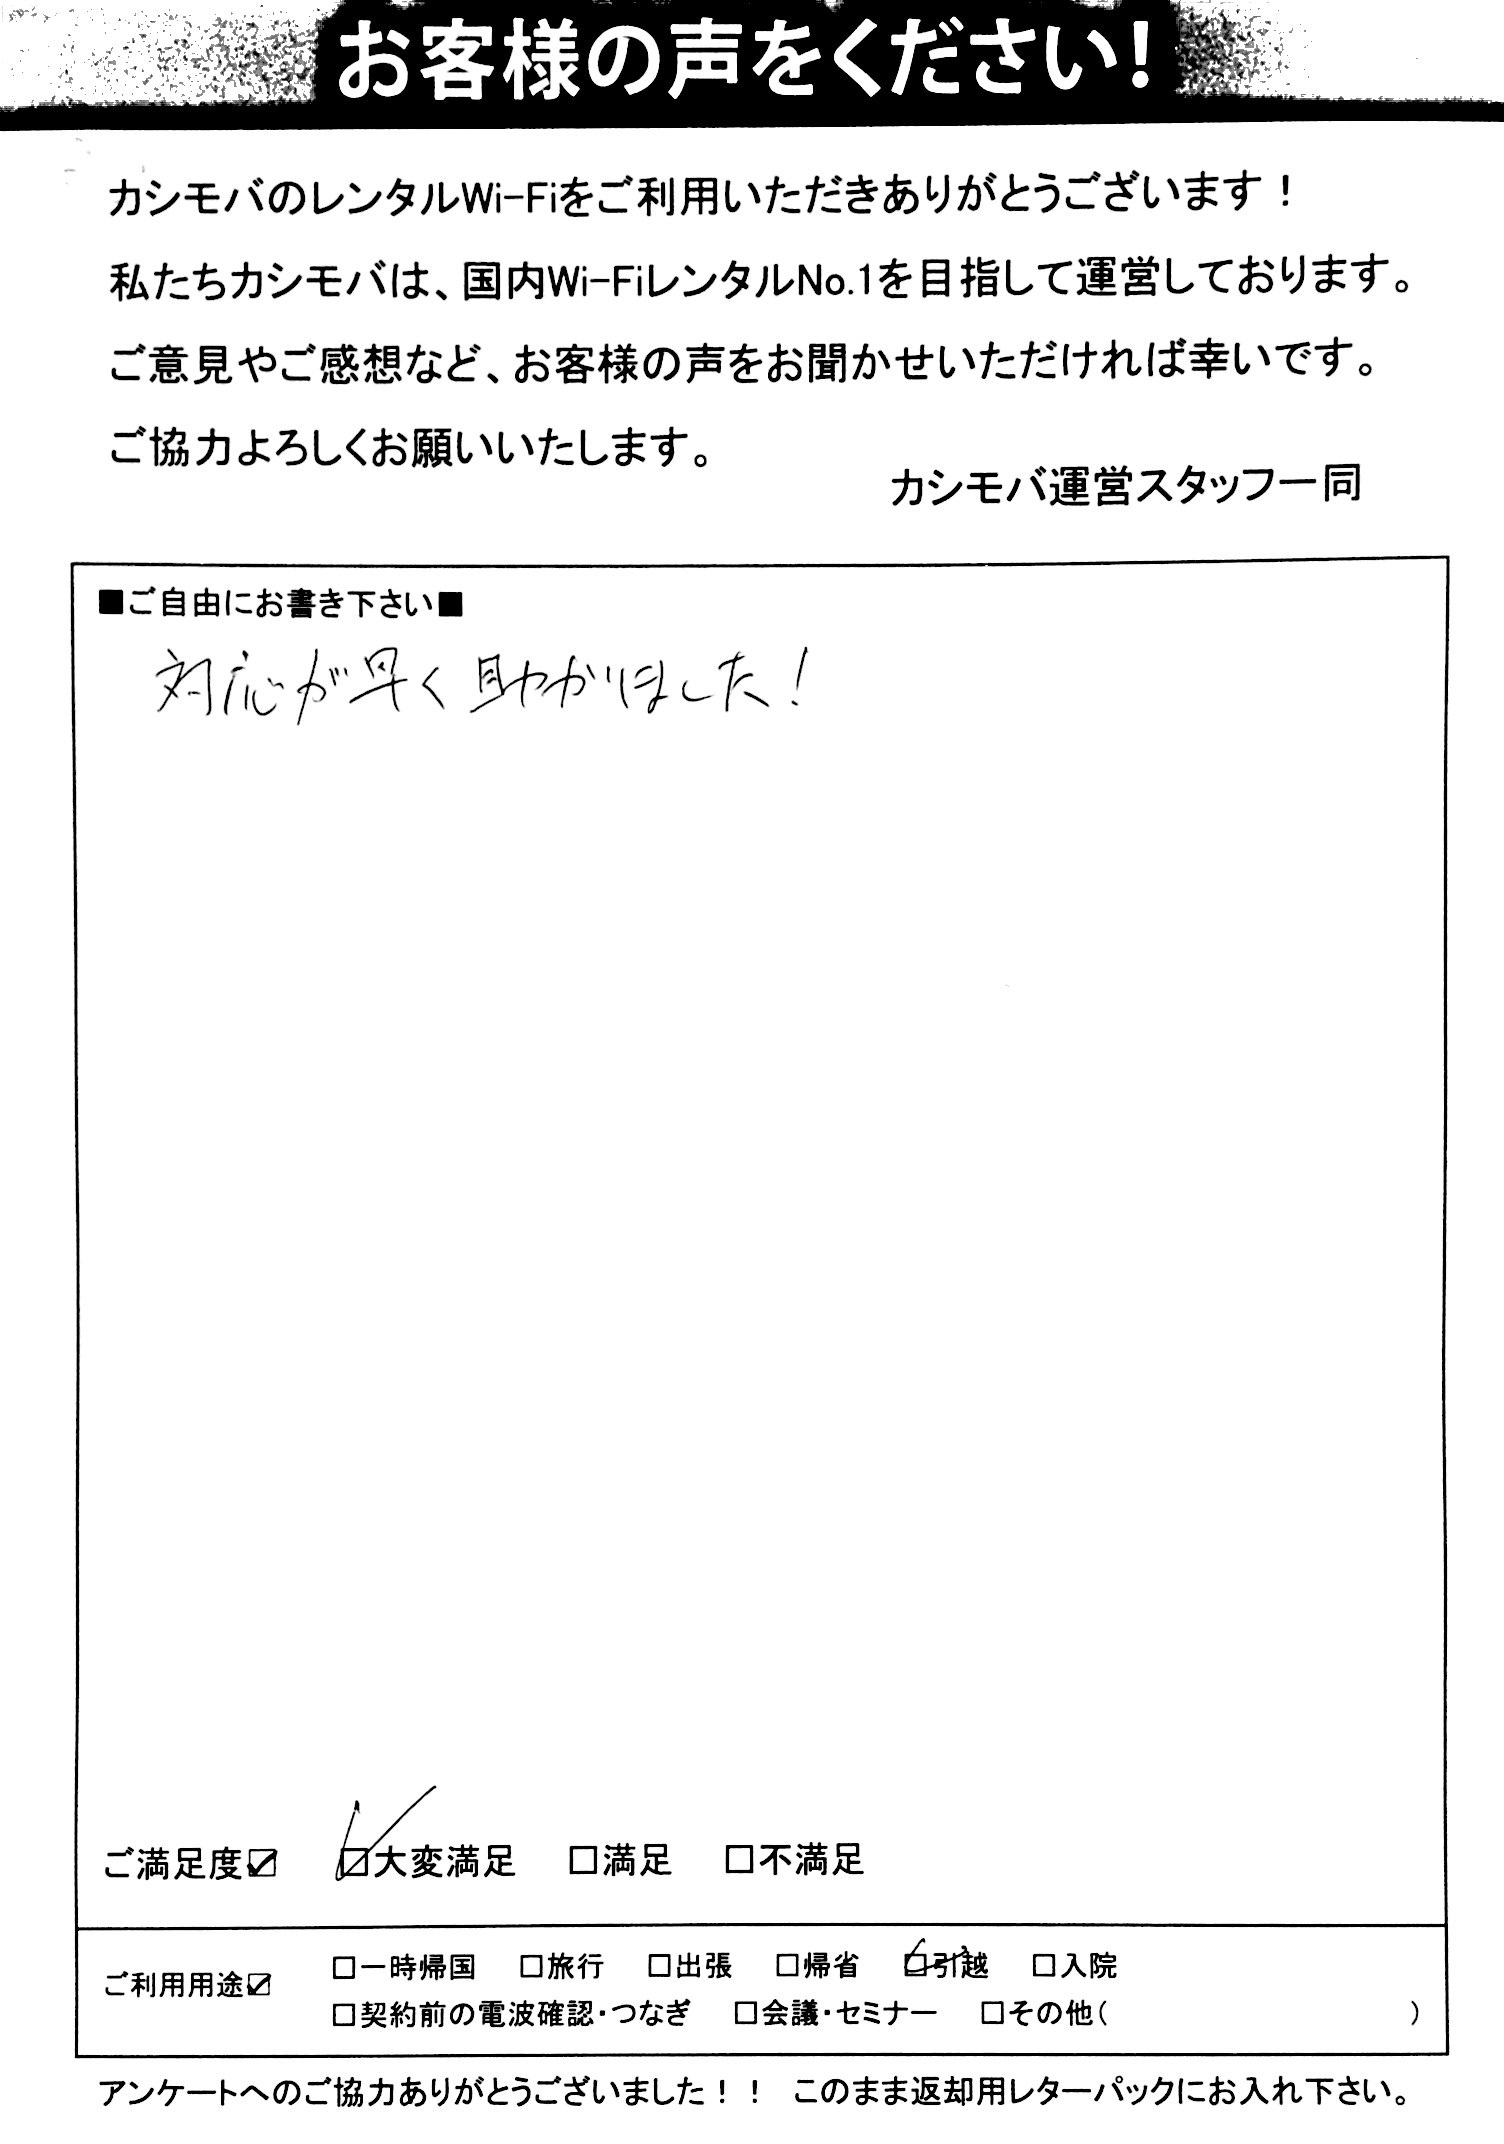 お客様の声をください!
カシモバのレンタルWi-Fiをご利用いただきありがとうございます！
私たちカシモバは、国内Wi-FiレンタルNo.1を目指して運営しております。
ご意見やご感想など、お客様の声をお聞かせいただければ幸いです。
ご協力よろしくお願いいたします。
カシモバ運営スタッフ一同
■ご自由にお書き下さい■
対応が早く助かりました！
ご満足度☑ ☑大変満足 □満足 □不満足
ご利用用途☑ □一時帰国 □旅行 □出張 □帰省 ☑引越 □入院
□契約前の電波確認・つなぎ □会議・セミナー □その他( )
アンケートへのご協力ありがとうございました！！ このまま返却用レターパックにお入れ下さい。